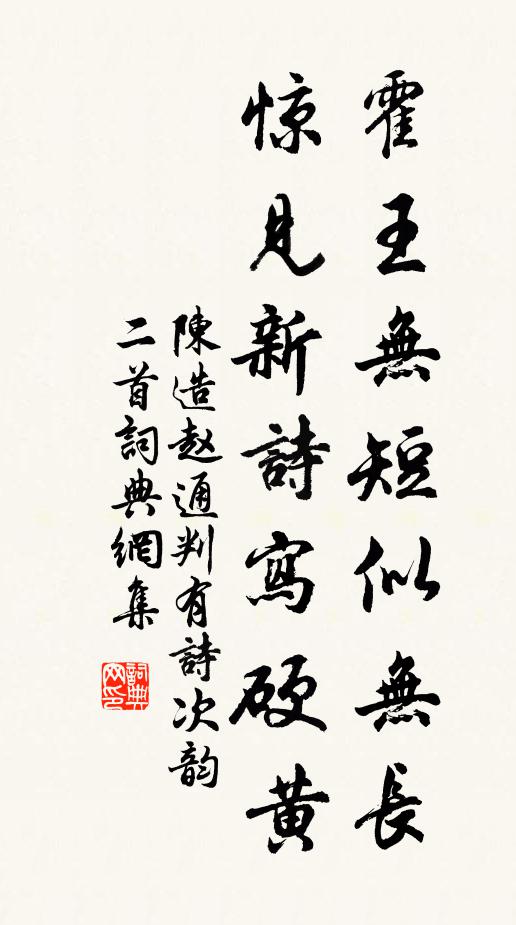 霍王無短似無長
惊見新詩寫硬黄
陳造赵通判有詩次韵
二首詞典網集
詞典网印